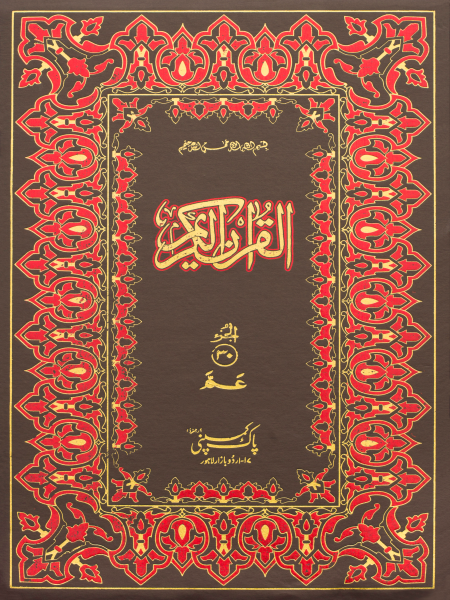 بسم الله الرحمن الرحيم
القرآن الكريم
الجزء
٣٠
عَمَّ
پاک کمپنی (رجسٹرڈ)
۱۷-اردو بازار لاہور